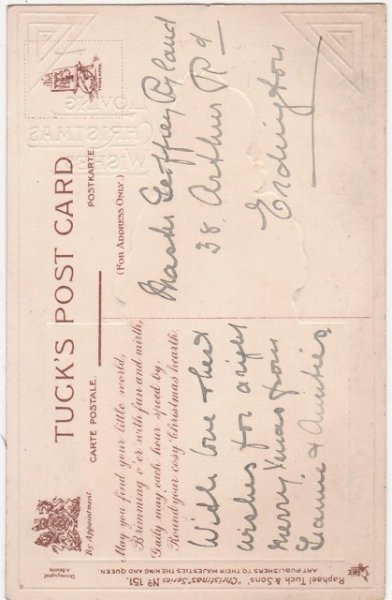 TUCK'S POST CARD
By Appointment.
CARTE POSTALE.
POSTKARTE
(FOR ADDRESS ONLY.)
May you find your little world,
Brimming o'er with fun and mirth,
Gaily may each hour speed by,
Round your cosy Christmas hearth.
With love & best
wishes for a right
merry Xmas from
Grannie & Aunties
Master Geoffrey Ryland
38. Arthur Rd
Erdington
LOVING
CHRISTMAS
WISHES
Raphael Tuck & Sons' "Christmas" Series Nº 151.
ART PUBLISHERS TO THEIR MAJESTIES THE KING AND QUEEN